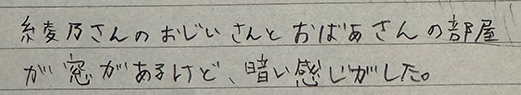 綾乃さんのおじいさんとおばあさんの部屋
が窓があるけど、暗い感じがした。